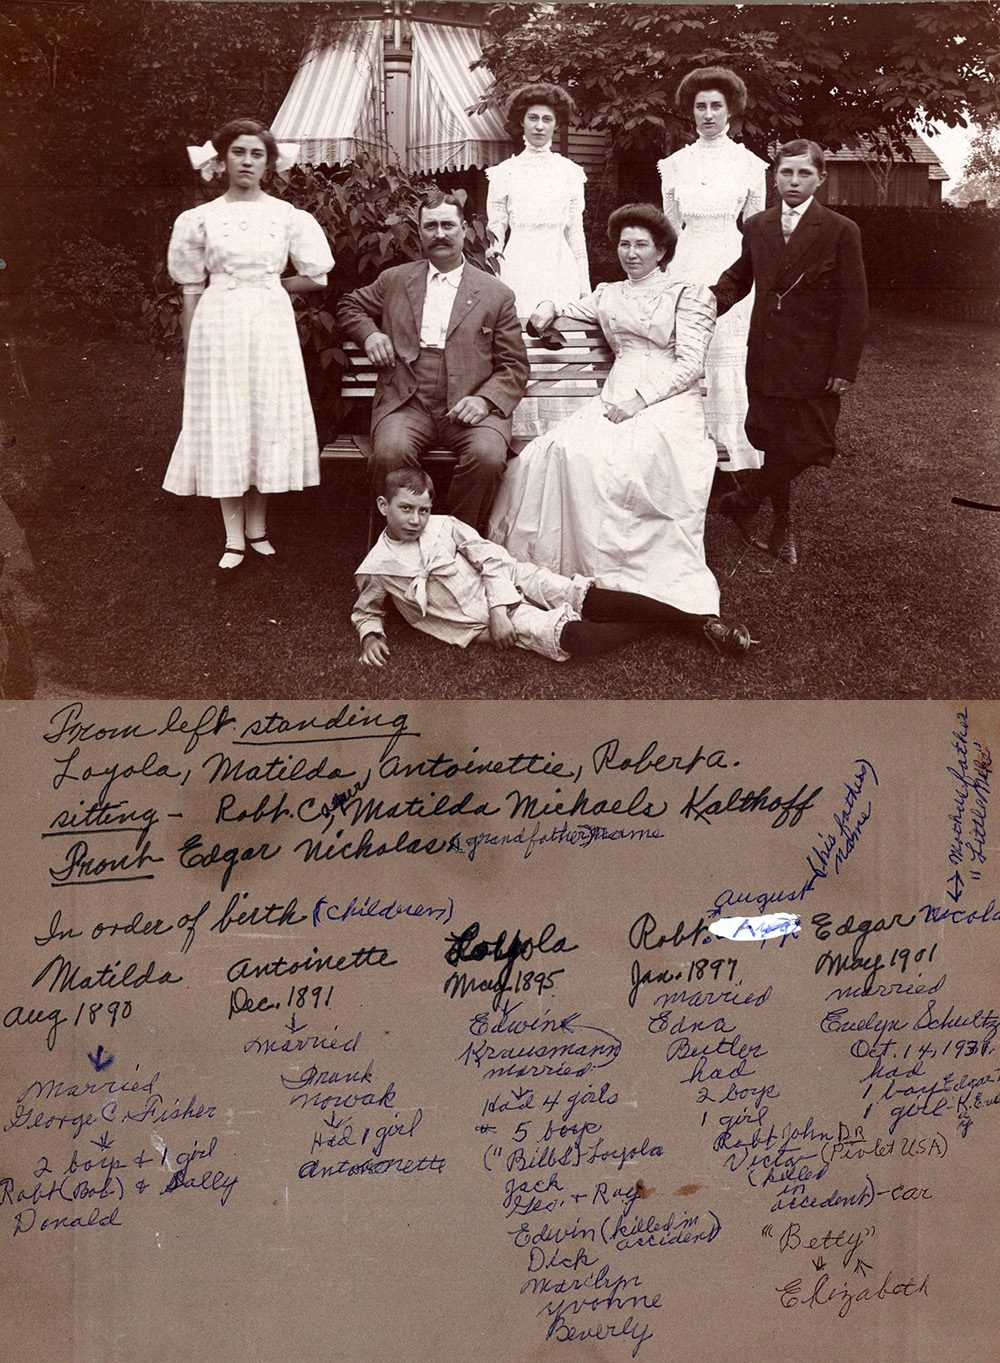 From left standing
Loyola, Matilda, Antoinettie, Robert a.
sitting - Robt. C., Matilda Michaels Kalthoff
Front Edgar Nicholas (grandfather) name
(his father)
name
↳ Mothers father
"Little Nick"
In order of birth (children)
Matilda
Aug 1890
↓
Married
George C. Fisher
↓
2 boys & 1 girl
Robt (Bob) & Sally
Donald
Antoinette
Dec. 1891
↓
married
Frank
Nowak
↓
Had 1 girl
Antoinette
Loyola
May 1895
↓
Edwin
Krausmann
married
↓
Had 4 girls
5 boys
("Bills") Loyola
Jack
Geo. & Ray
Edwin (killed in
accident)
Dick
Marilyn
Yvonne
Beverly
August
Robt.
Jan. 1897
married
Edna
Butler
had
2 boys
1 girl
Robt John DR
Victor (Pivlet USA)
(killed
in
accident) - car
"Betty"
↓ ↑
Elizabeth
Edgar Nicola
May 1901
married
Evelyn Schultz
Oct. 14, 193
had
1 boy Edgar
1 girl - K. Eve